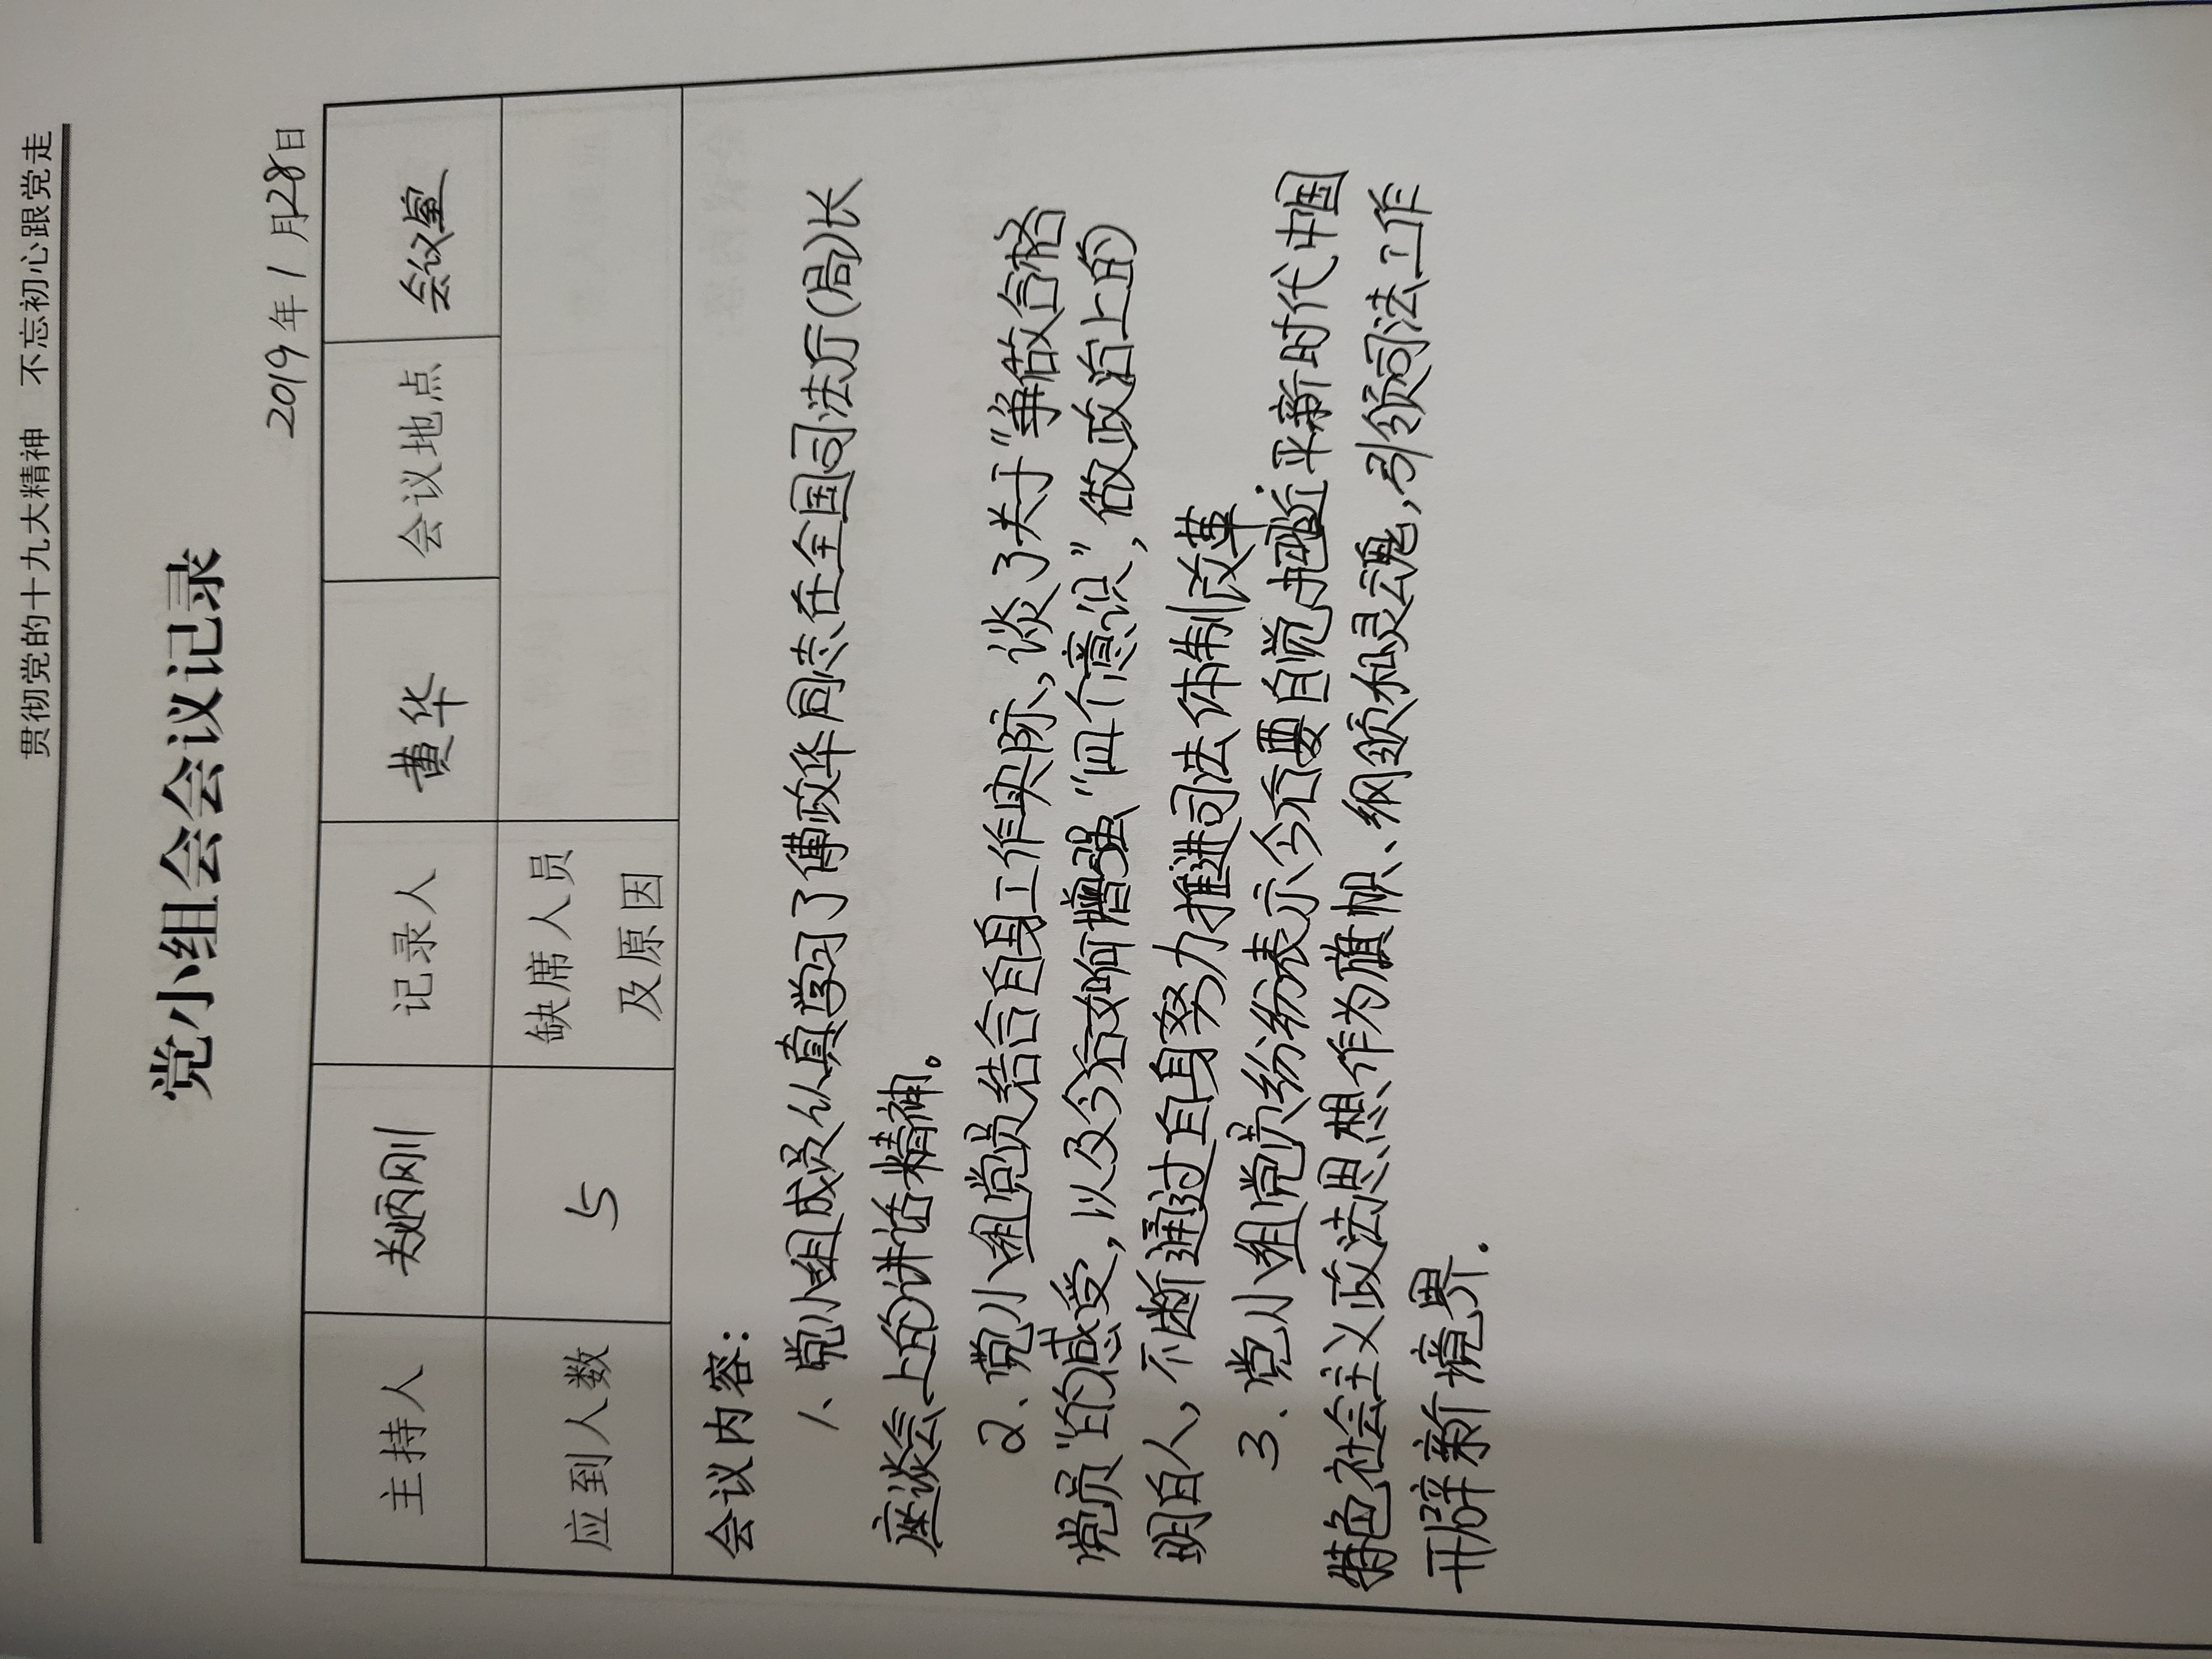 贯彻党的十九大精神 不忘初心跟党走
党小组会会议记录
2019年1月28日
主持人 关炳刚 记录人 黄华 会议地点 会议室
应到人数 5 缺席人员及原因
会议内容:
1、党小组成员认真学习了傅政华同志在全国司法厅(局)长
座谈会上的讲话精神。
2、党小组党员结合自身工作实际,谈了关于“争做合格
党员”的感受,以及今后如何增强“四个意识”,做政治上的
明白人,不断通过自身努力推进司法体制改革.
3、党小组党员纷纷表示今后要自觉把习近平新时代中国
特色社会主义政法思想作为旗帜、纲领和灵魂,引领司法工作
开辟新境界.